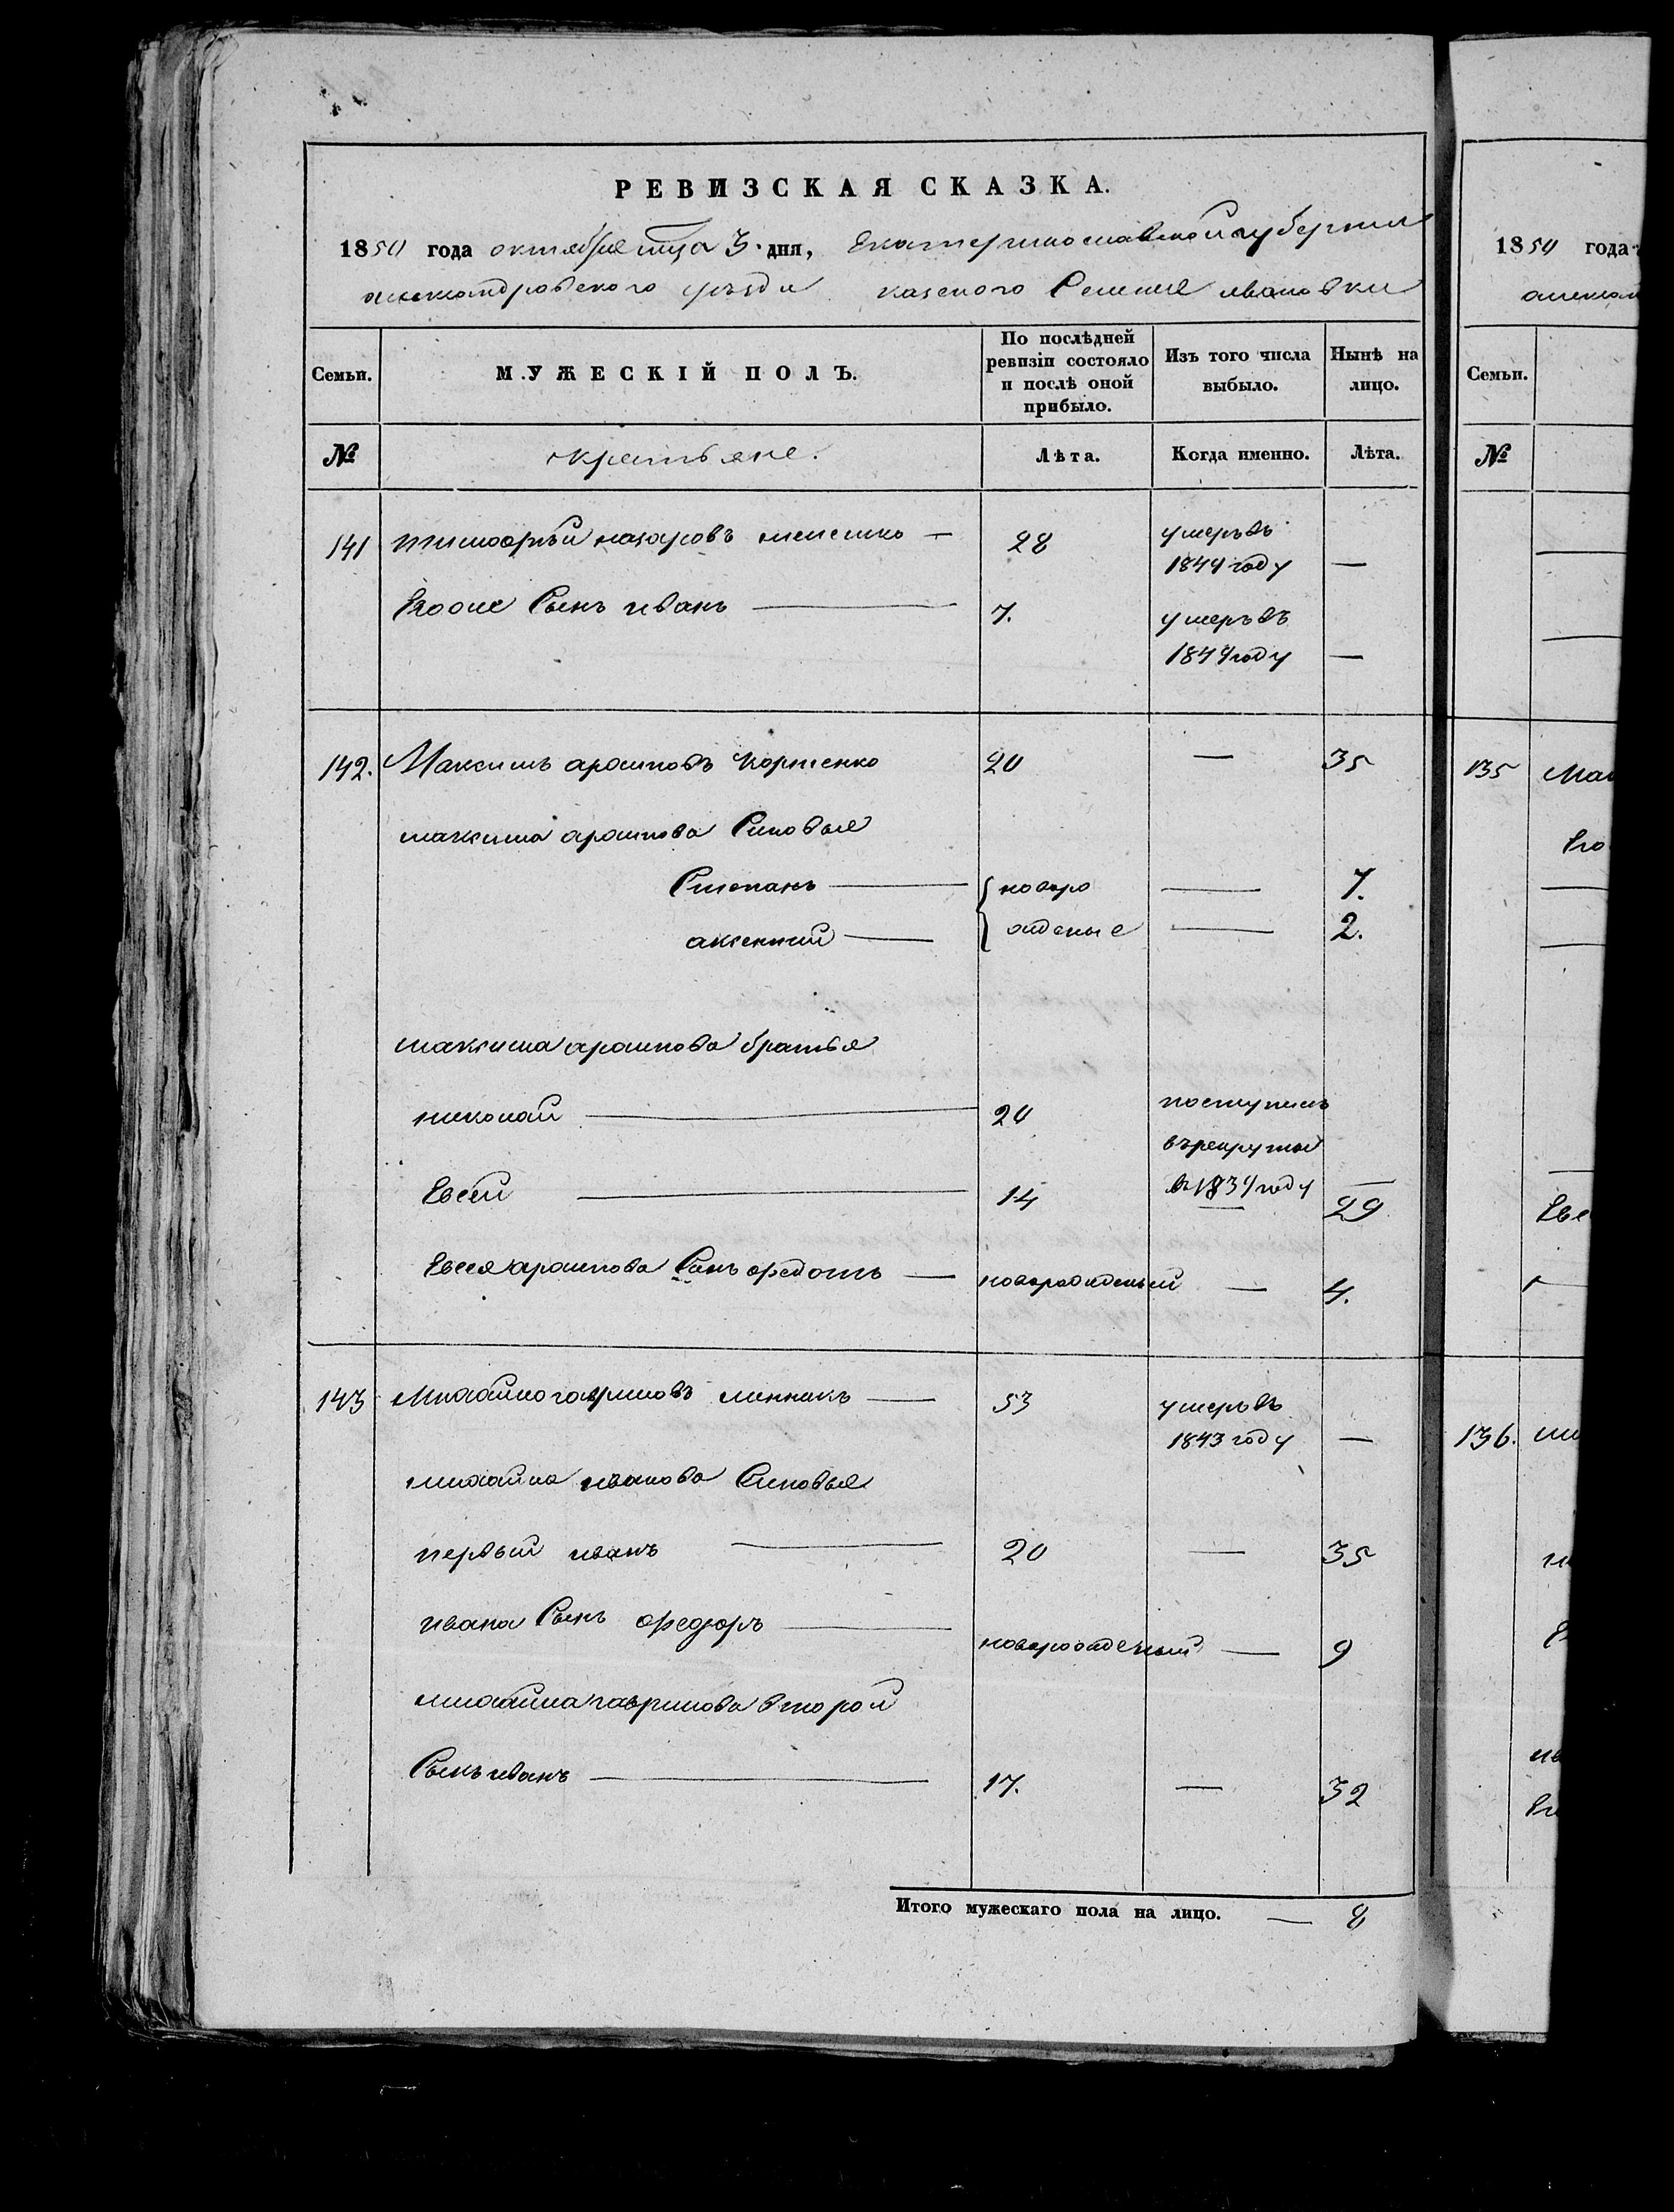 РЕВИЗСКАЯ СКАЗКА.
1850 года октября мца 3. дня, Екатеринославской губернии
александровского уезда казеного Селения ивановки
Семьи. МУЖЕСКІЙ ПОЛЪ. По послѣдней ревизіи состояло и послѣ оной прибыло. Изъ того числа выбыло. Нынѣ на лицо.
№ крестьяне. Лѣта. Когда именно. Лѣта.
141 тимофѣй назаровъ — 28 умеръ въ
1844 году —
Его Сынъ иванъ — 7. умеръ въ
1844 году —
142. Максимъ Корженко 20 — 35
максима Синовья
Степанъ — новоро — 7.
аксентий — жденые — 2.
максима братья
николай — 20 поступилъ
в рекруты
Евсей — 14 в 1834 году — 29
Евсея Синъ федотъ — новорожденый — 4.
143 Михайло гавриловъ — 53 умеръ въ
1843 году —
михайла иванова Синовья
первый иванъ — 20 — 35
ивана Сынъ федоръ — новорожденый — 9
михайла гаврилова второй
Сынъ иванъ — 17. — 32
Итого мужескаго пола на лицо. — 8
1850 года
Семьи.
№
135
136.